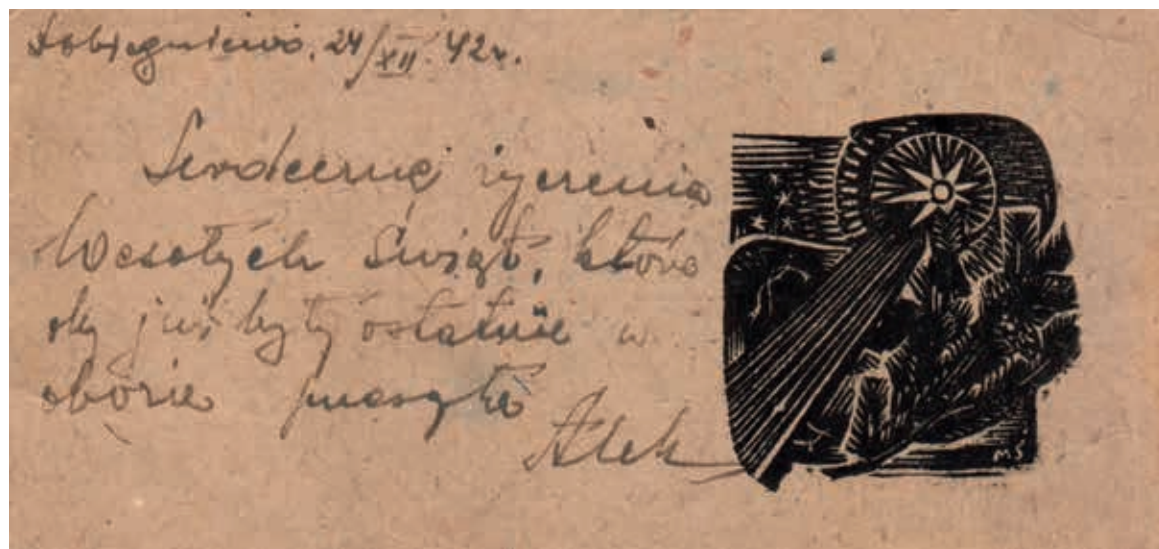 Dobiegniewo. 24/XII. 42r.
Serdeczne życzenia
Wesołych Świąt, które
oby już były ostatnie w
obozie przesyła
Alek
MS